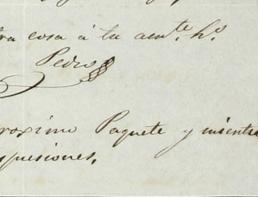 tra cosa á tu amte. ho.
Pedro
roximo Paquete y mientra
spresiones.